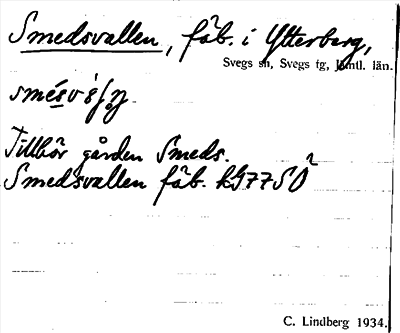 Smedsvallen, fäb. i Ytterberg,
Svegs sn, Svegs tg, Jämtl. län.
Tillhör gården Smeds.
Smedsvallen fäb. k977SÖ
C. Lindberg 1934.